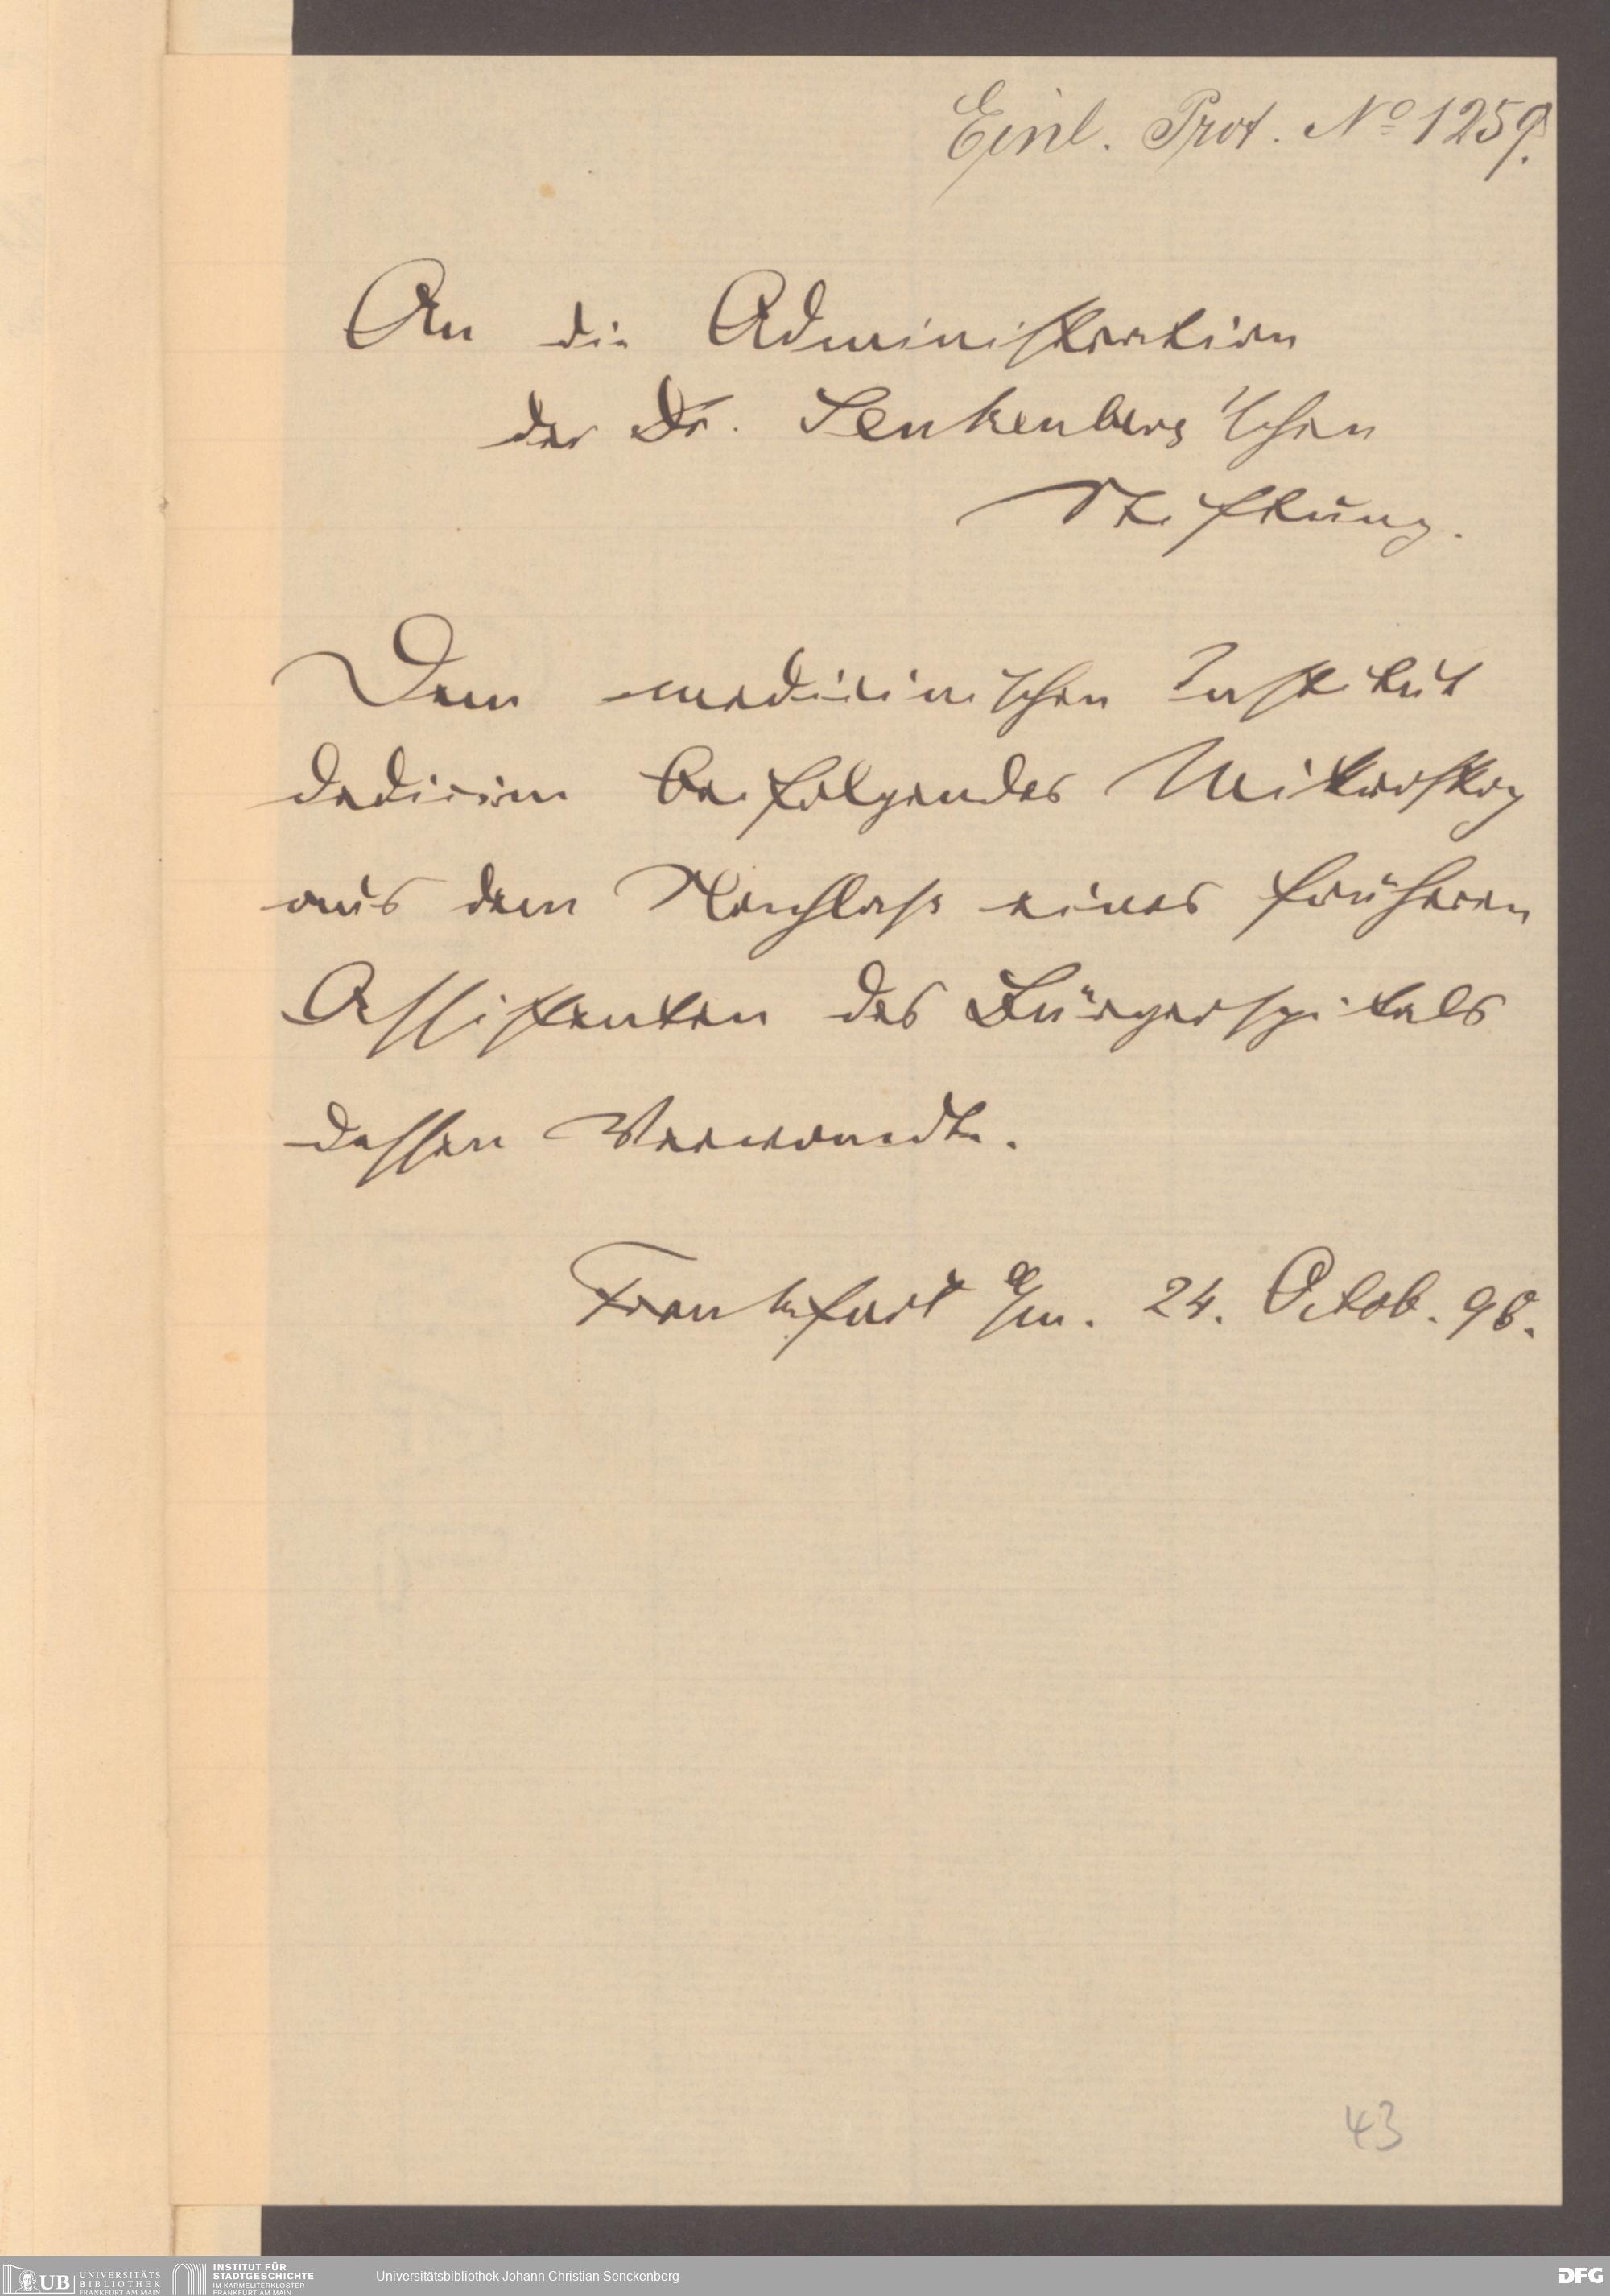 Einl. Prot. No 1259.
An die Administration
der Dr. Senkenberg'schen
Stiftung.
Dem medicinischen Institut
dediciren beifolgendes Mikroskop
aus dem Nachlass eines früheren
Assistenten des Bürgerspitals
dessen Verwandte.
Frankfurt a/m. 24. Octob. 98.
43
UB UNIVERSITÄTS BIBLIOTHEK FRANKFURT AM MAIN
INSTITUT FÜR STADTGESCHICHTE IM KARMELITERKLOSTER FRANKFURT AM MAIN
Universitätsbibliothek Johann Christian Senckenberg
DFG